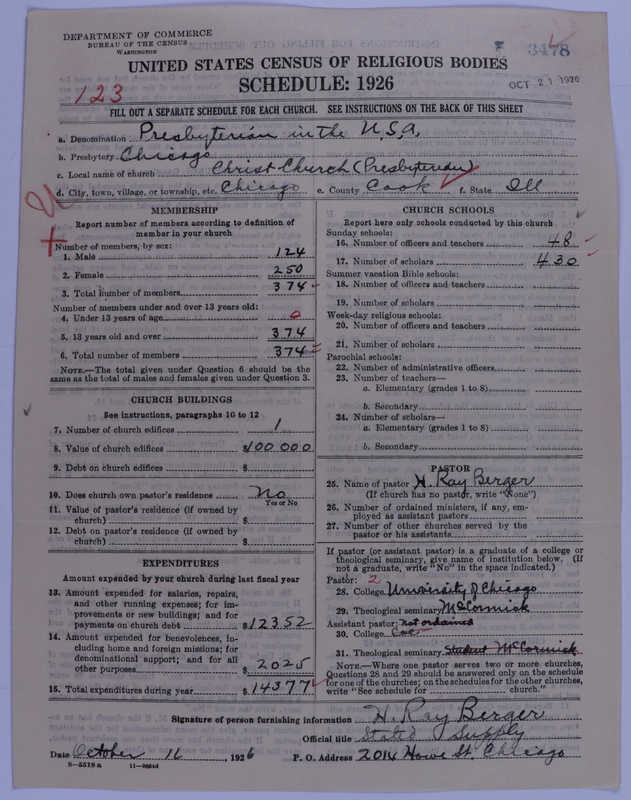 DEPARTMENT OF COMMERCE
BUREAU OF THE CENSUS
WASHINGTON
3478
UNITED STATES CENSUS OF RELIGIOUS BODIES
SCHEDULE: 1926
OCT 21 1926
123
FILL OUT A SEPARATE SCHEDULE FOR EACH CHURCH. SEE INSTRUCTIONS ON THE BACK OF THIS SHEET
a. Denomination Presbyterian in the U.S.A.
b. Presbytery Chicago
c. Local name of church Christ Church (Presbyterian)
d. City, town, village, or township, etc. Chicago e. County Cook f. State Ill
MEMBERSHIP
Report number of members according to definition of member in your church
Number of members, by sex:
1. Male 124
2. Female 250
3. Total number of members 374
Number of members under and over 13 years old:
4. Under 13 years of age 0
5. 13 years old and over 374
6. Total number of members 374
NOTE.—The total given under Question 6 should be the
same as the total of males and females given under Question 3.
CHURCH BUILDINGS
See instructions, paragraphs 10 to 12
7. Number of church edifices 1
8. Value of church edifices $100 000
9. Debt on church edifices $
10. Does church own pastor's residence No
Yes or No
11. Value of pastor's residence (if owned by
church) $
12. Debt on pastor's residence (if owned by
church) $
EXPENDITURES
Amount expended by your church during last fiscal year
13. Amount expended for salaries, repairs,
and other running expenses; for im-
provements or new buildings; and for
payments on church debt $12352
14. Amount expended for benevolences, in-
cluding home and foreign missions; for
denominational support; and for all
other purposes $ 2025
15. Total expenditures during year $14377
CHURCH SCHOOLS
Report here only schools conducted by this church
Sunday schools:
16. Number of officers and teachers 48
17. Number of scholars 430
Summer vacation Bible schools:
18. Number of officers and teachers
19. Number of scholars
Week-day religious schools:
20. Number of officers and teachers
21. Number of scholars
Parochial schools:
22. Number of administrative officers
23. Number of teachers—
a. Elementary (grades 1 to 8)
b. Secondary
24. Number of scholars—
a. Elementary (grades 1 to 8)
b. Secondary
PASTOR
25. Name of pastor H. Ray Berger
(If church has no pastor, write "None")
26. Number of ordained ministers, if any, em-
ployed as assistant pastors
27. Number of other churches served by the
pastor or his assistants
If pastor (or assistant pastor) is a graduate of a college or
theological seminary, give name of institution below. (If
not a graduate, write "No" in the space indicated.)
Pastor: 2
28. College University of Chicago
29. Theological seminary McCormick
Assistant pastor: not ordained
30. College Coe
31. Theological seminary Student McCormick
NOTE.—Where one pastor serves two or more churches,
Questions 28 and 29 should be answered only on the schedule
for one of the churches; on the schedules for the other churches,
write "See schedule for church."
Signature of person furnishing information H. Ray Berger
Official title Stated Supply
Date October 16, 1926 P. O. Address 2014 Howe St. Chicago
8—5518 a